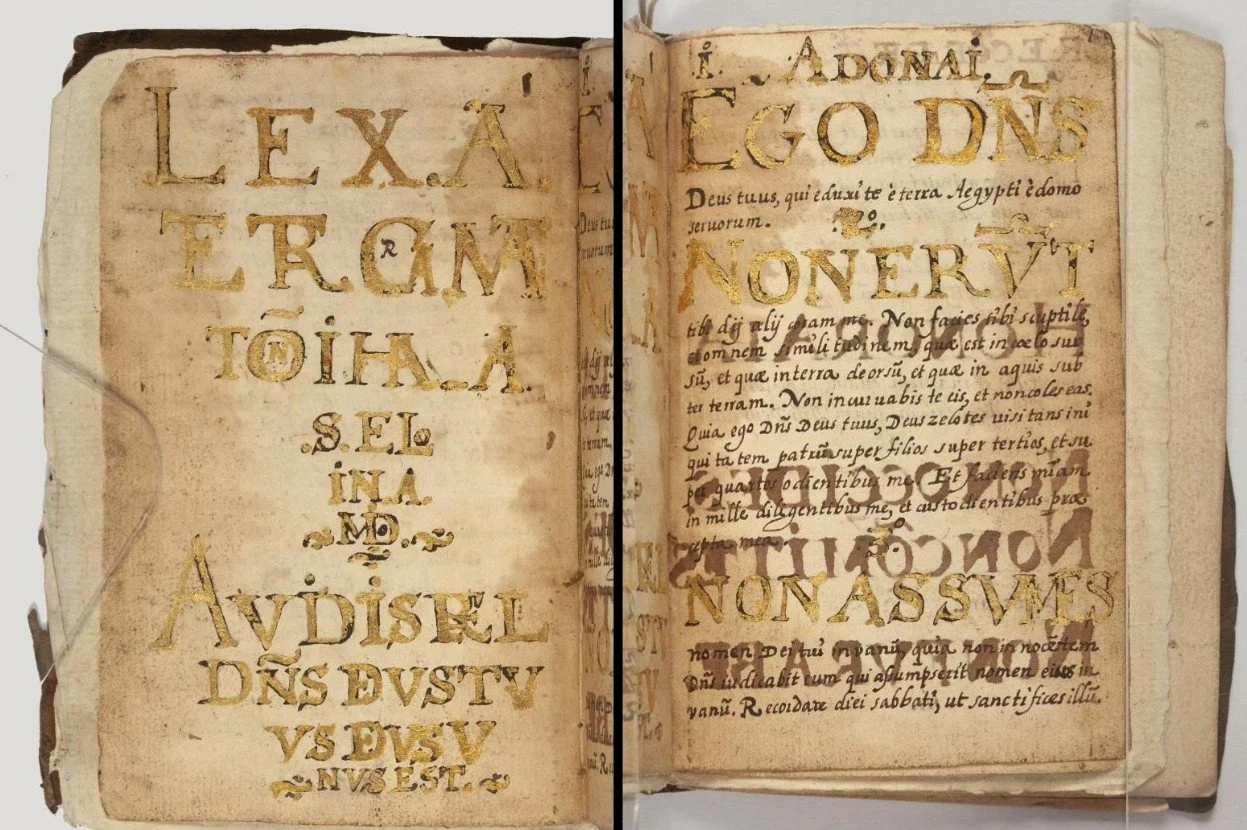 LEX.A.
TERGM
TÕIHA.A.
.S.EL.
IN.A.
MD.
AVDISREL
DÑS DVSTV
VS DVSV
NVS EST.
I. ADONAI.
EGO DÑS
Deus tuus, qui eduxi te è terra Aegypti è domo
seruorum.
2.
NON ERṼT
tibi dij alij coram me. Non facies tibi sculptile,
et omnem similitudinem, quæ est in cœlo sur
sũ, et quæ in terra deorsũ, et quæ in aquis sub
ter terram. Non incuruabis te eis, et non coles eas.
Quia ego Dñs Deus tuus, Deus zelotes visitans ini
quitatem patrũ super filios super tertios, et su
per quartos odientibus me. Et faciens miam
in mille diligentibus me, et custodientibus præ
cepta mea.
3.
NON ASSVMES
nomen Dei tui in vanũ, quia non innocẽtem
Dñs iudicabit eum qui assumpserit nomen eius in
vanũ. Recordare diei sabbati, ut sanctifices illũ.